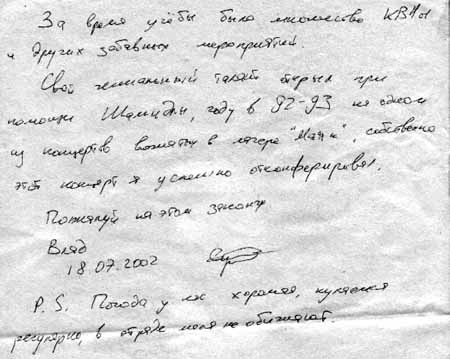 За время учёбы было множество КВНов
и других забавных мероприятий.
Свой гениальный талант открыл при
помощи Шамиданы, году в 92-93 на одном
из концертов вожатых в лагере "Маяк", собственно
этот концерт я успешно отконферировал.
Пожалуй на этом закончу
Влад
18.07.2002
P.S. Погода у нас хорошая, купаемся
регулярно, в отряде меня не обижают.